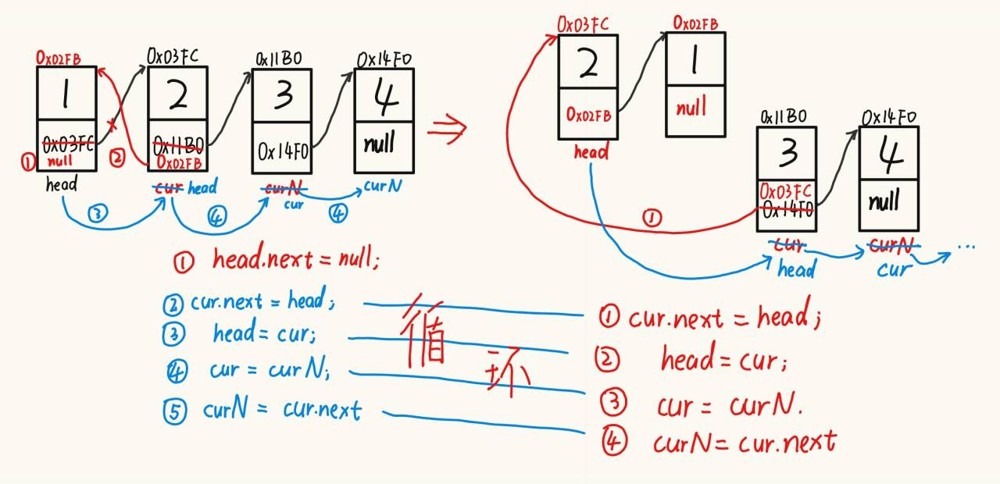 0x02FB
0x03FC
0x11B0
0x14F0
1
2
3
4
0x03FC
null
0x11B0
0x02FB
0x14F0
null
①
②
head
cur head
curN
cur
curN
③
④
④
0x03FC
0x02FB
2
1
0x02FB
null
head
0x11B0
0x14F0
3
4
0x03FC
0x14F0
null
①
cur
head
curN
cur
...
① head.next = null;
② cur.next = head;
③ head = cur;
④ cur = curN;
⑤ curN = cur.next
循环
① cur.next = head;
② head = cur;
③ cur = curN.
④ curN = cur.next